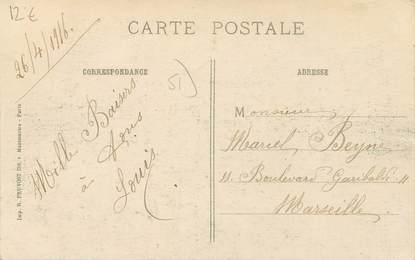 12 €
CARTE POSTALE
26/4/1916.
CORRESPONDANCE
ADRESSE
51)
Mille Baisers
à tous
Louis
Monsieur
Marcel Beyne
11. Boulevard Garibaldi 11
Marseille.